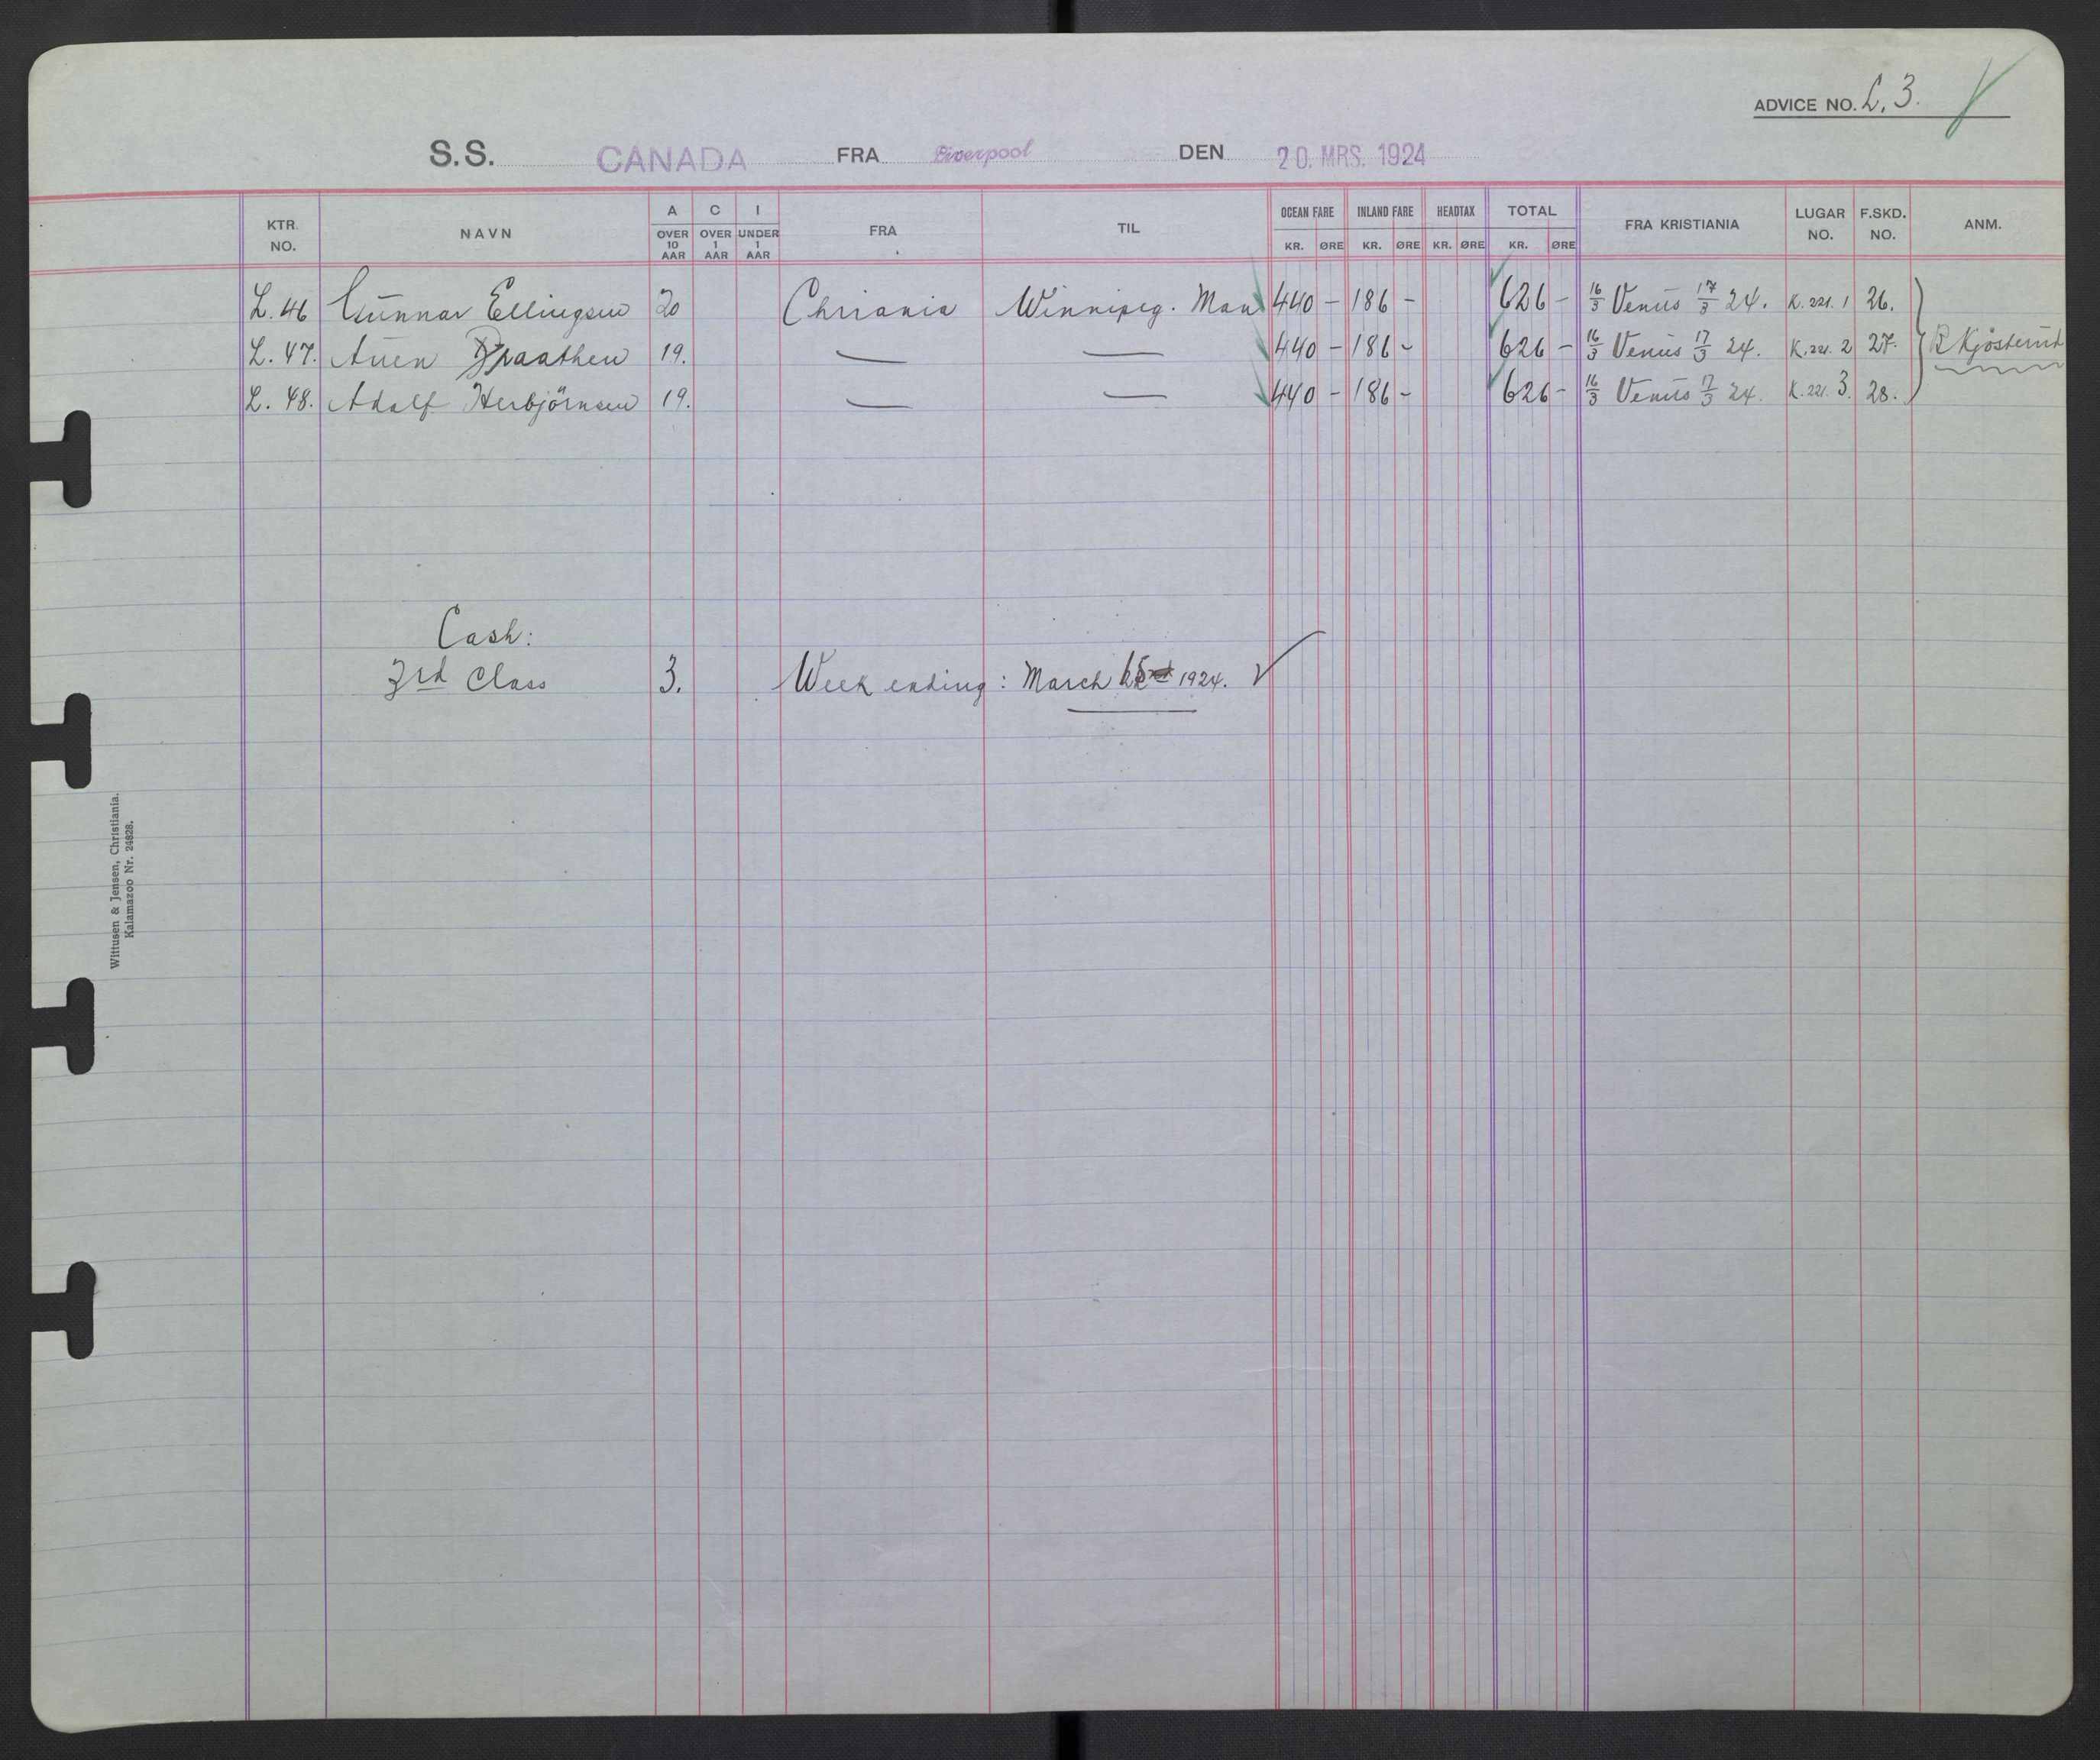 ADVICE NO. L. 3.
S.S. CANADA FRA Liverpool DEN 20. MRS. 1924
KTR. NO. NAVN A OVER 10 AAR C OVER 1 AAR I UNDER 1 AAR FRA TIL OCEAN FARE KR. ØRE INLAND FARE KR. ØRE HEADTAX KR. ØRE TOTAL KR. ØRE FRA KRISTIANIA LUGAR NO. F.SKD. NO. ANM.
L. 46 Gunnar Ellingsen 20 Chriania Winnipeg. Man 440 - 186 - 626 - 16/3 Venus 17/3 24. K. 221. 1 26.
L. 47. Auen Braathen 19. — — 440 - 186 - 626 - 16/3 Venus 17/3 24. K. 221. 2 27. R Kjösterud
L. 48. Adolf Herbjörnsen 19. — — 440 - 186 - 626 - 16/3 Venus 17/3 24. K. 221. 3. 28.
Cash:
3rd Class 3. Week ending: March 1924.
Wittusen & Jensen, Christiania.
Kalamazoo Nr. 24828.